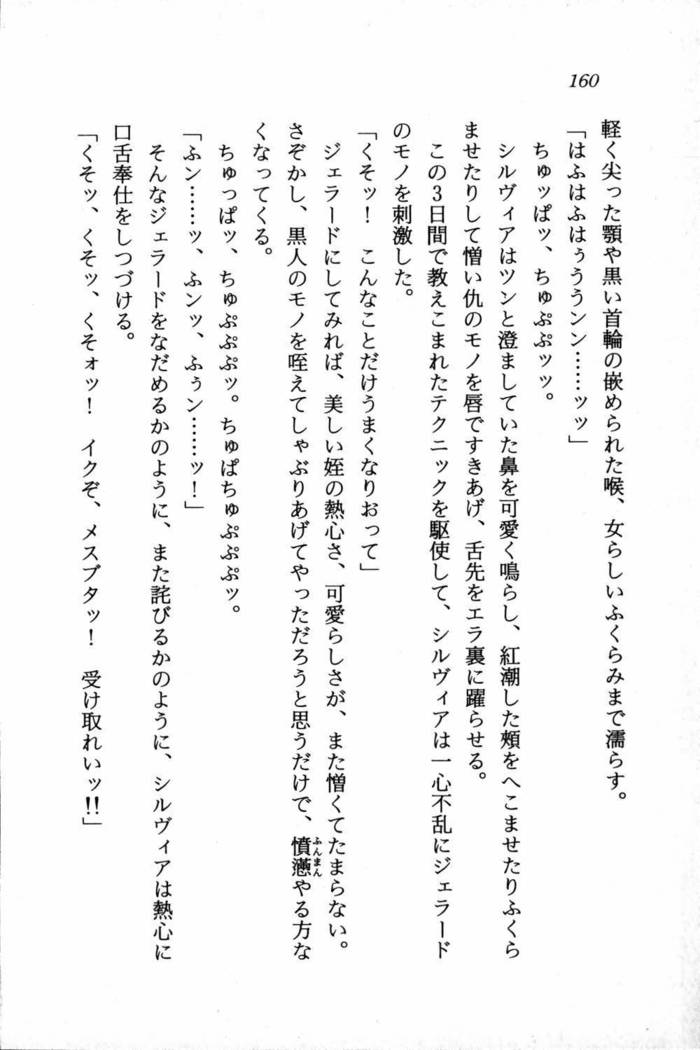 160
軽く尖った顎や黒い首輪の嵌められた喉、女らしいふくらみまで濡らす。
「はふはふはぅううンン……ッッ」
ちゅッぱッ、ちゅぷぷッッ。
シルヴィアはツンと澄ましていた鼻を可愛く鳴らし、紅潮した頬をへこませたりふくら
ませたりして憎い仇のモノを唇ですきあげ、舌先をエラ裏に躍らせる。
この3日間で教えこまれたテクニックを駆使して、シルヴィアは一心不乱にジェラード
のモノを刺激した。
「くそッ！　こんなことだけうまくなりおって」
ジェラードにしてみれば、美しい姪の熱心さ、可愛らしさが、また憎くてたまらない。
さぞかし、黒人のモノを咥えてしゃぶりあげてやっただろうと思うだけで、憤懣やる方な
ふんまん
くなってくる。
ちゅっぱッ、ちゅぷぷぷッ。ちゅぱちゅぷぷぷッ。
「ふン……ッ、ふンッ、ふぅン……ッ！」
そんなジェラードをなだめるかのように、また詫びるかのように、シルヴィアは熱心に
口舌奉仕をしつづける。
「くそッ、くそッ、くそォッ！　イクぞ、メスブタッ！　受け取れいッ!!」